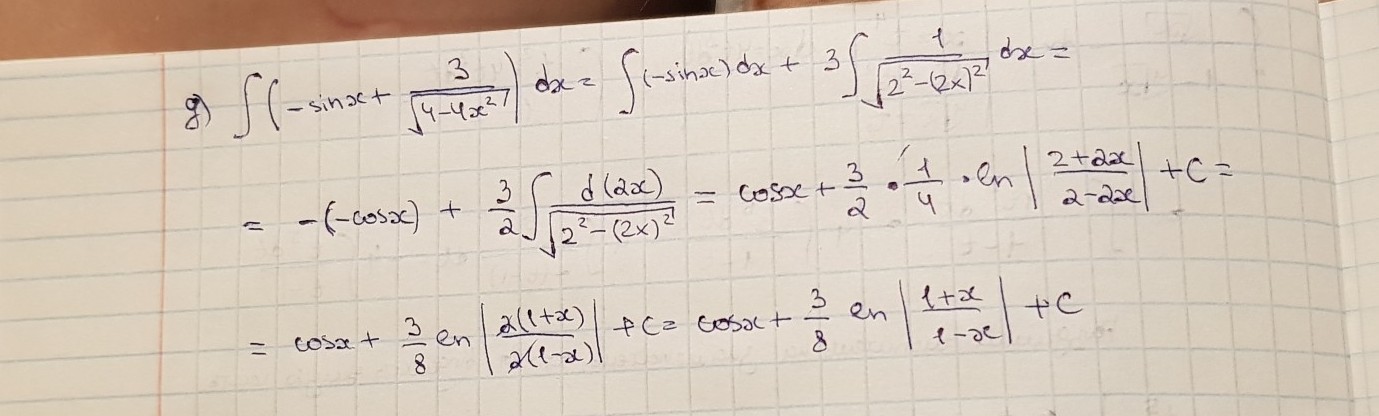 g) ∫(-sinx + 3/√(4-4x²)) dx = ∫(-sinx)dx + 3∫ 1/√(2²-(2x)²) dx =
= -(-cosx) + 3/2 ∫ d(2x)/√(2²-(2x)²) = cosx + 3/2 • 1/4 • ln |(2+2x)/(2-2x)| + C =
= cosx + 3/8 ln |2(1+x)/2(1-x)| + C = cosx + 3/8 ln |(1+x)/(1-x)| + C